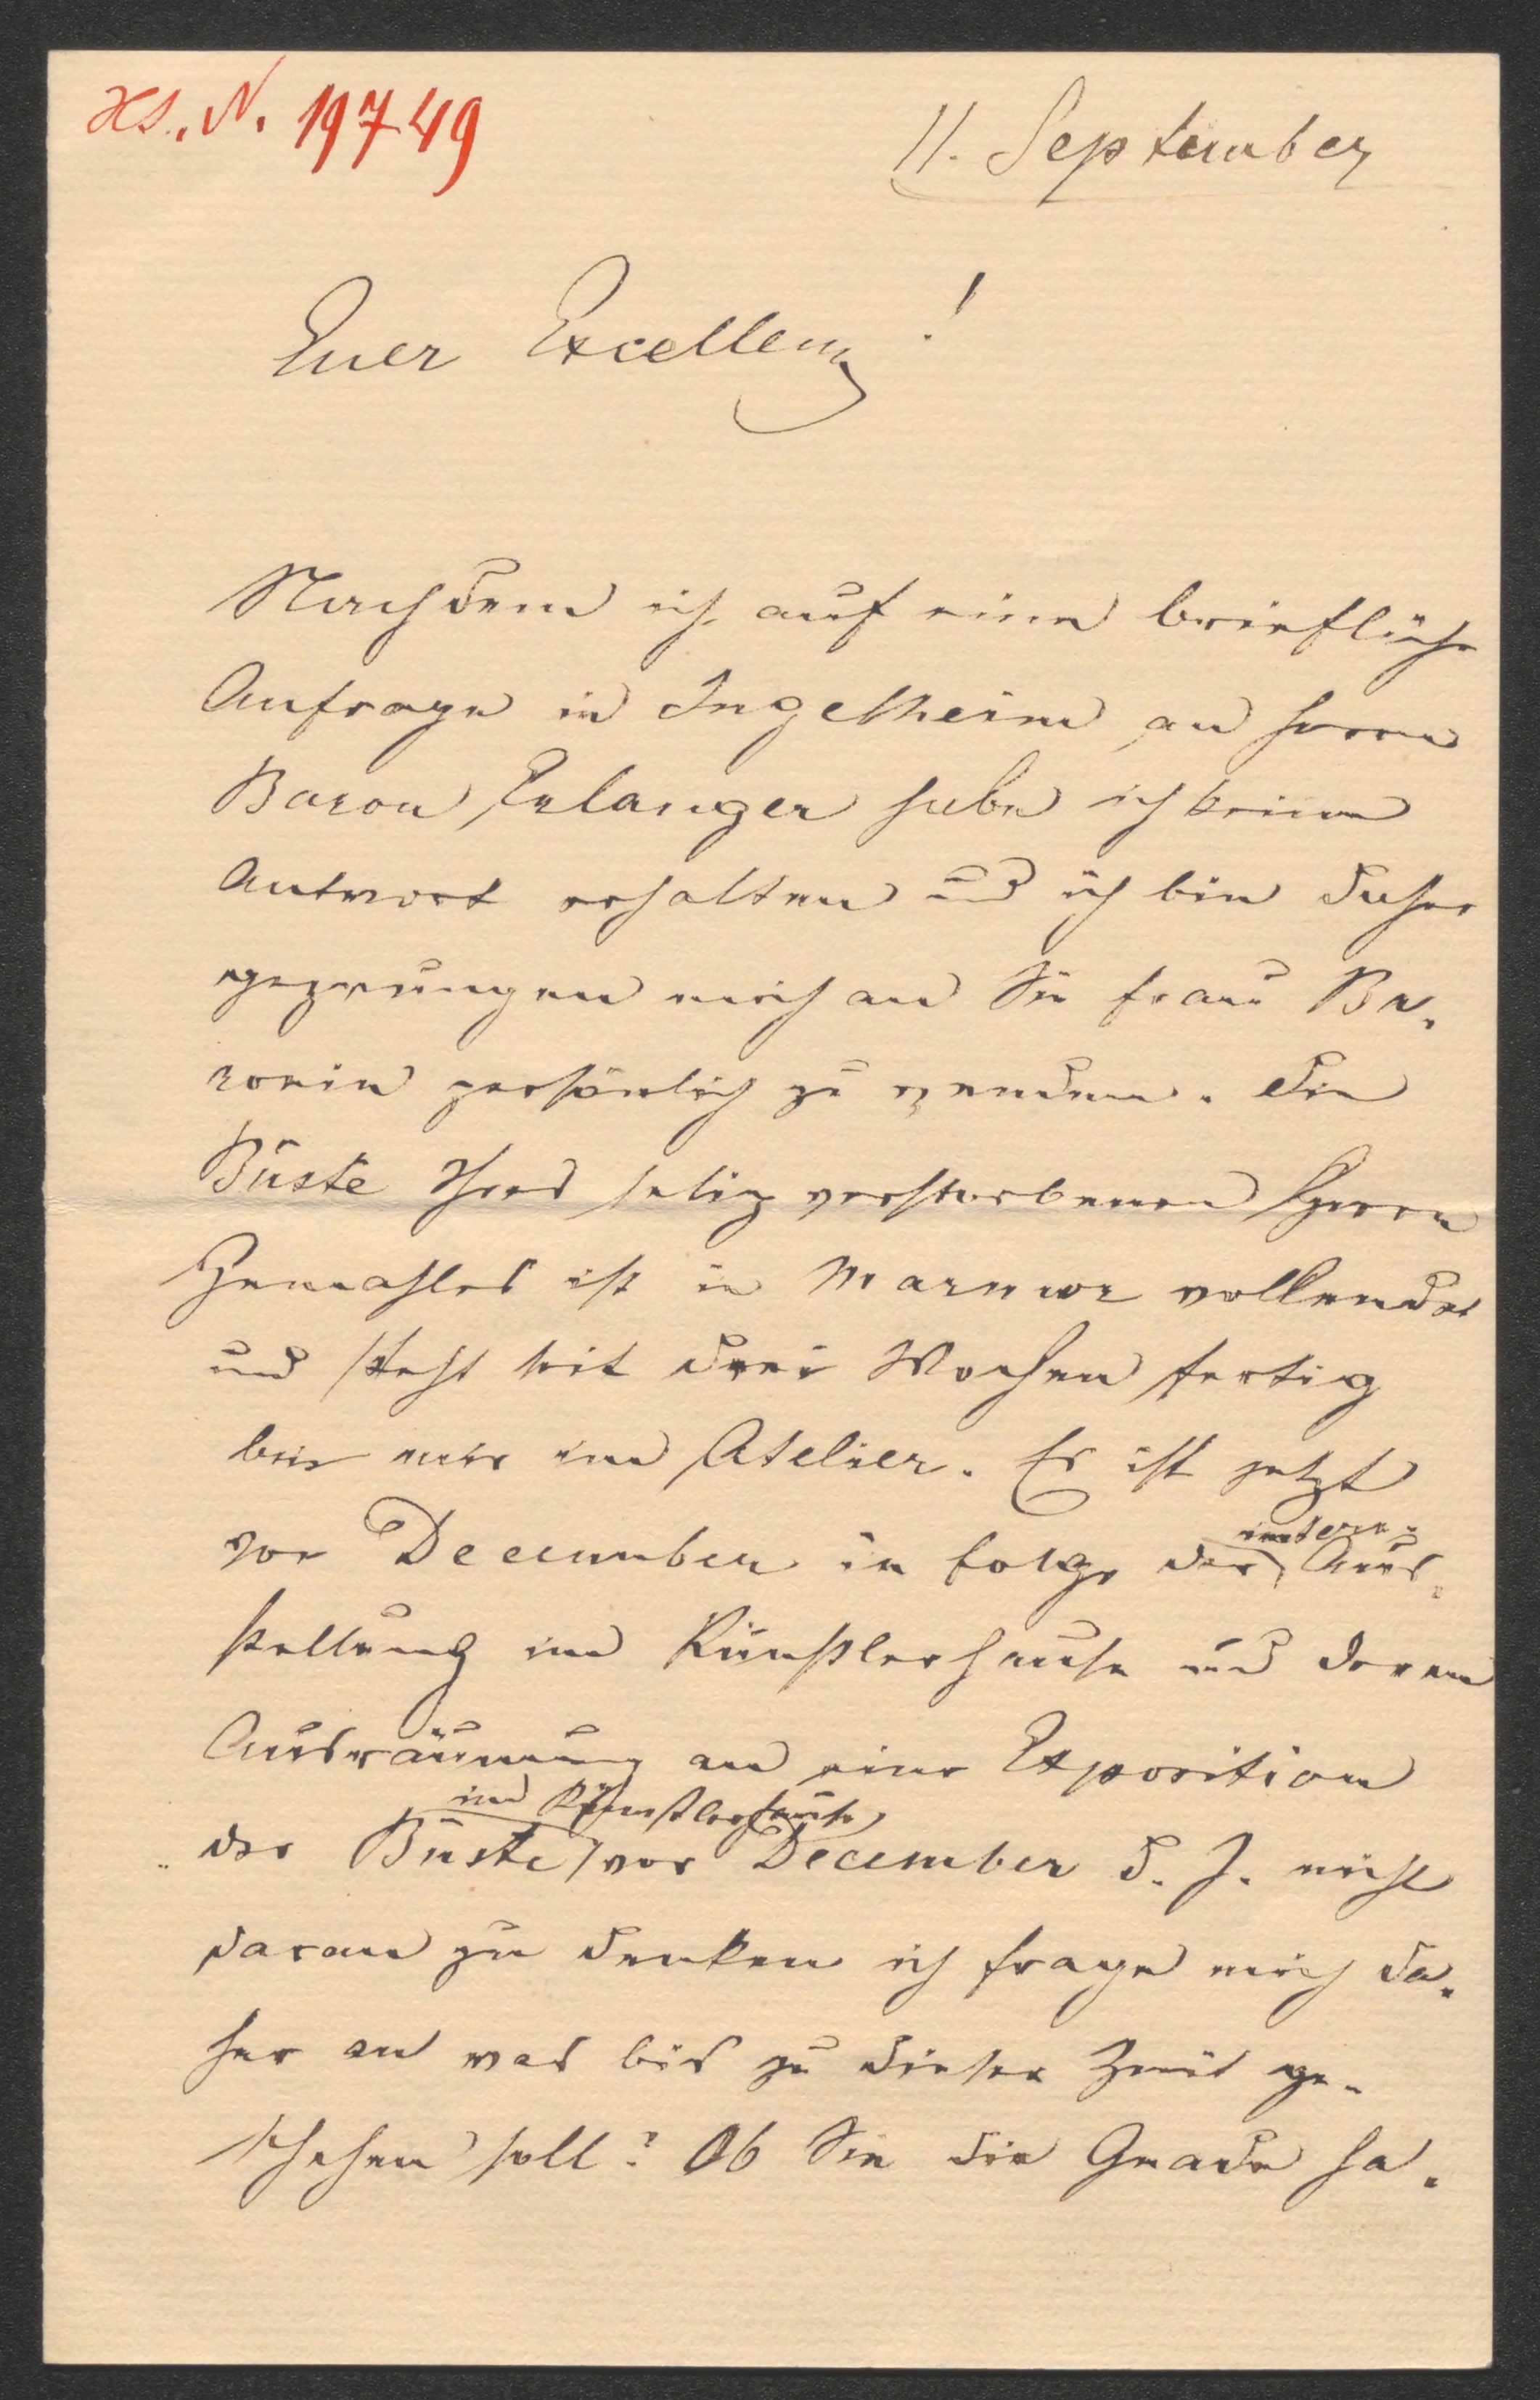 Hs. N. 19749
11. September
Euer Excellenz!
Nachdem ich auf eine briefliche
Anfrage in Ingelheim an Herrn
Baron Erlanger habe ich keine
Antwort erhalten und ich bin daher
gezwungen mich an Sie Frau Ba-
ronin persönlich zu wenden. Die
Büste Ihres selig verstorbenen Herrn
Gemahles ist in Marmor vollendet
und steht seit drei Wochen fertig
bei mir im Atelier. Es ist jetzt
vor December in folge der intern. Aus-
stellung im Künstlerhause und deren
Ausräumung an eine Exposition
der Büste im Künstlerhause vor December d. J. nicht
daran zu denken ich frage mich da-
her an was bis zu dieser Zeit ge-
schehen soll? Ob Sie die Gnade ha-